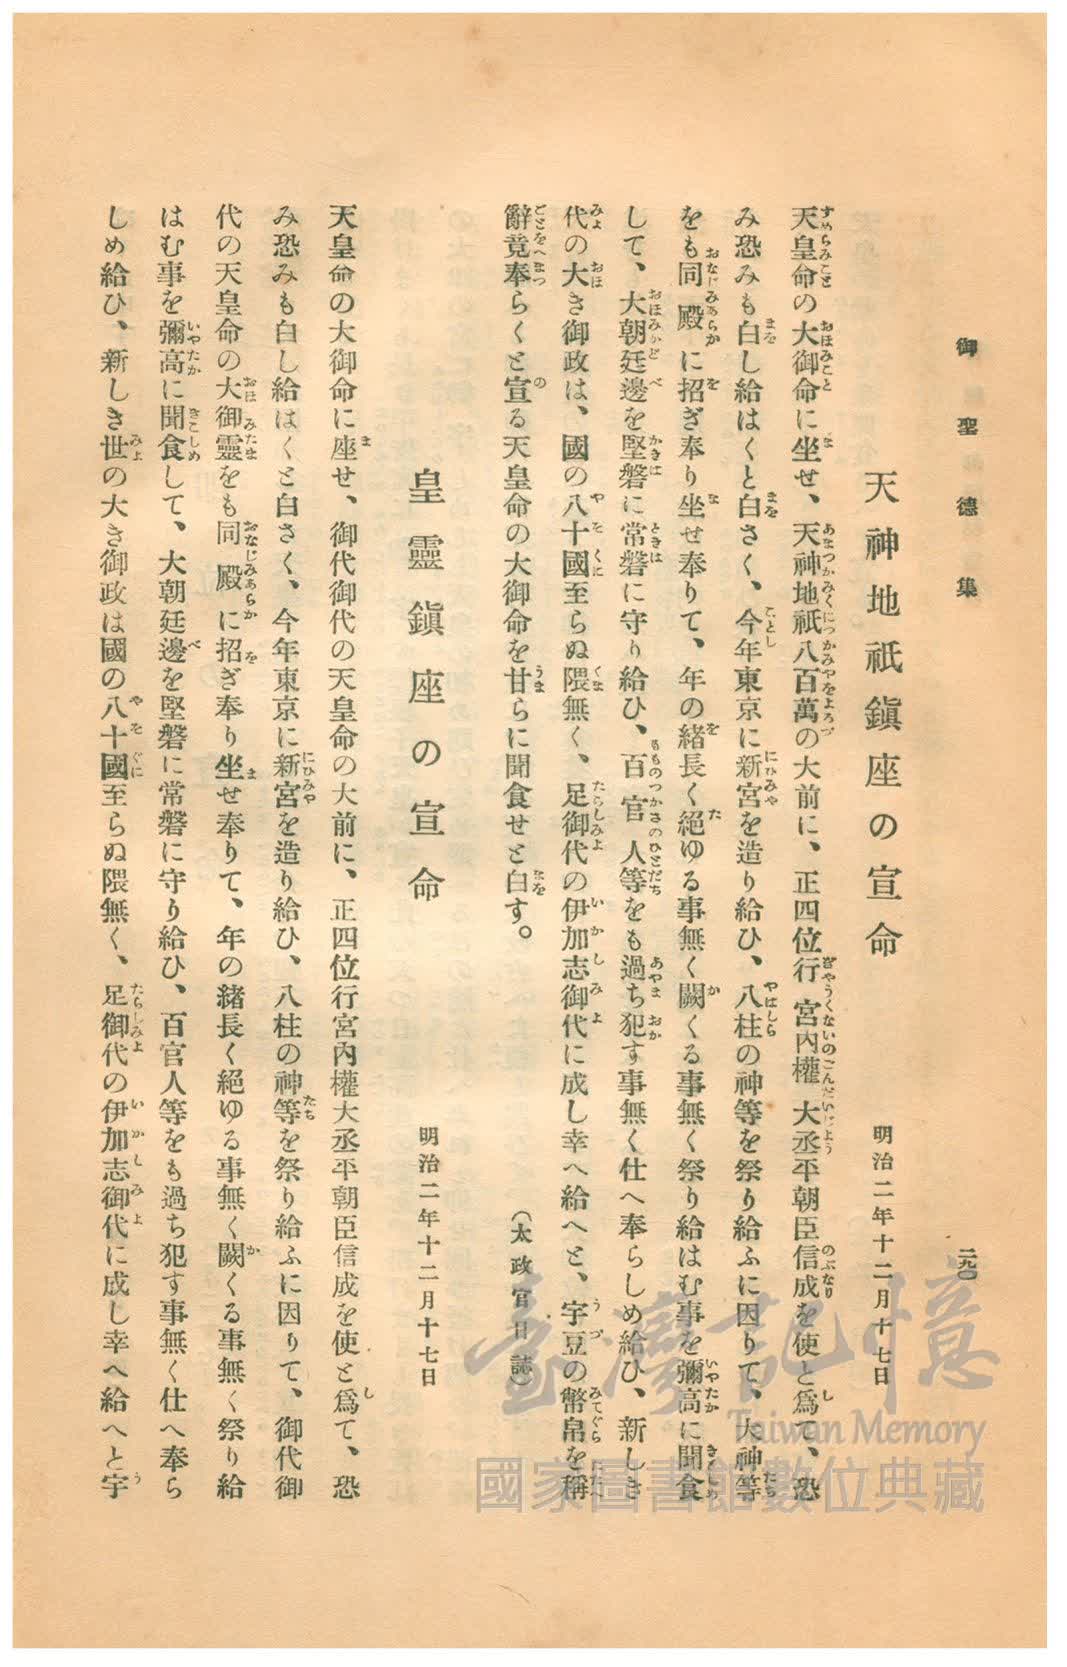 御聖德集
二九〇
天神地祇鎭座の宣命
明治二年十二月十七日
天皇命の大御命に坐せ、天神地祇八百萬の大前に、正四位行宮内權大丞平朝臣信成を使と爲て、恐
み恐みも白し給はくと白さく、今年東京に新宮を造り給ひ、八柱の神等を祭り給ふに因りて、大神等
をも同殿に招ぎ奉り坐せ奉りて、年の緒長く絕ゆる事無く闕くる事無く祭り給はむ事を彌高に聞食
して、大朝廷邊を堅磐に常磐に守り給ひ、百官人等をも過ち犯す事無く仕へ奉らしめ給ひ、新しき
代の大き御政は、國の八十國至らぬ隈無く、足御代の伊加志御代に成し幸へ給へと、宇豆の幣帛を稱
辭竟奉らくと宣る天皇命の大御命を甘らに聞食せと白す。
（太政官日誌）
皇靈鎭座の宣命
明治二年十二月十七日
天皇命の大御命に座せ、御代御代の天皇命の大前に、正四位行宮内權大丞平朝臣信成を使と爲て、恐
み恐みも白し給はくと白さく、今年東京に新宮を造り給ひ、八柱の神等を祭り給ふに因りて、御代御
代の天皇命の大御靈をも同殿に招ぎ奉り坐せ奉りて、年の緒長く絕ゆる事無く闕くる事無く祭り給
はむ事を彌高に聞食して、大朝廷邊を堅磐に常磐に守り給ひ、百官人等をも過ち犯す事無く仕へ奉ら
しめ給ひ、新しき世の大き御政は國の八十國至らぬ隈無く、足御代の伊加志御代に成し幸へ給へと宇
臺灣記憶
Taiwan Memory
國家圖書館數位典藏